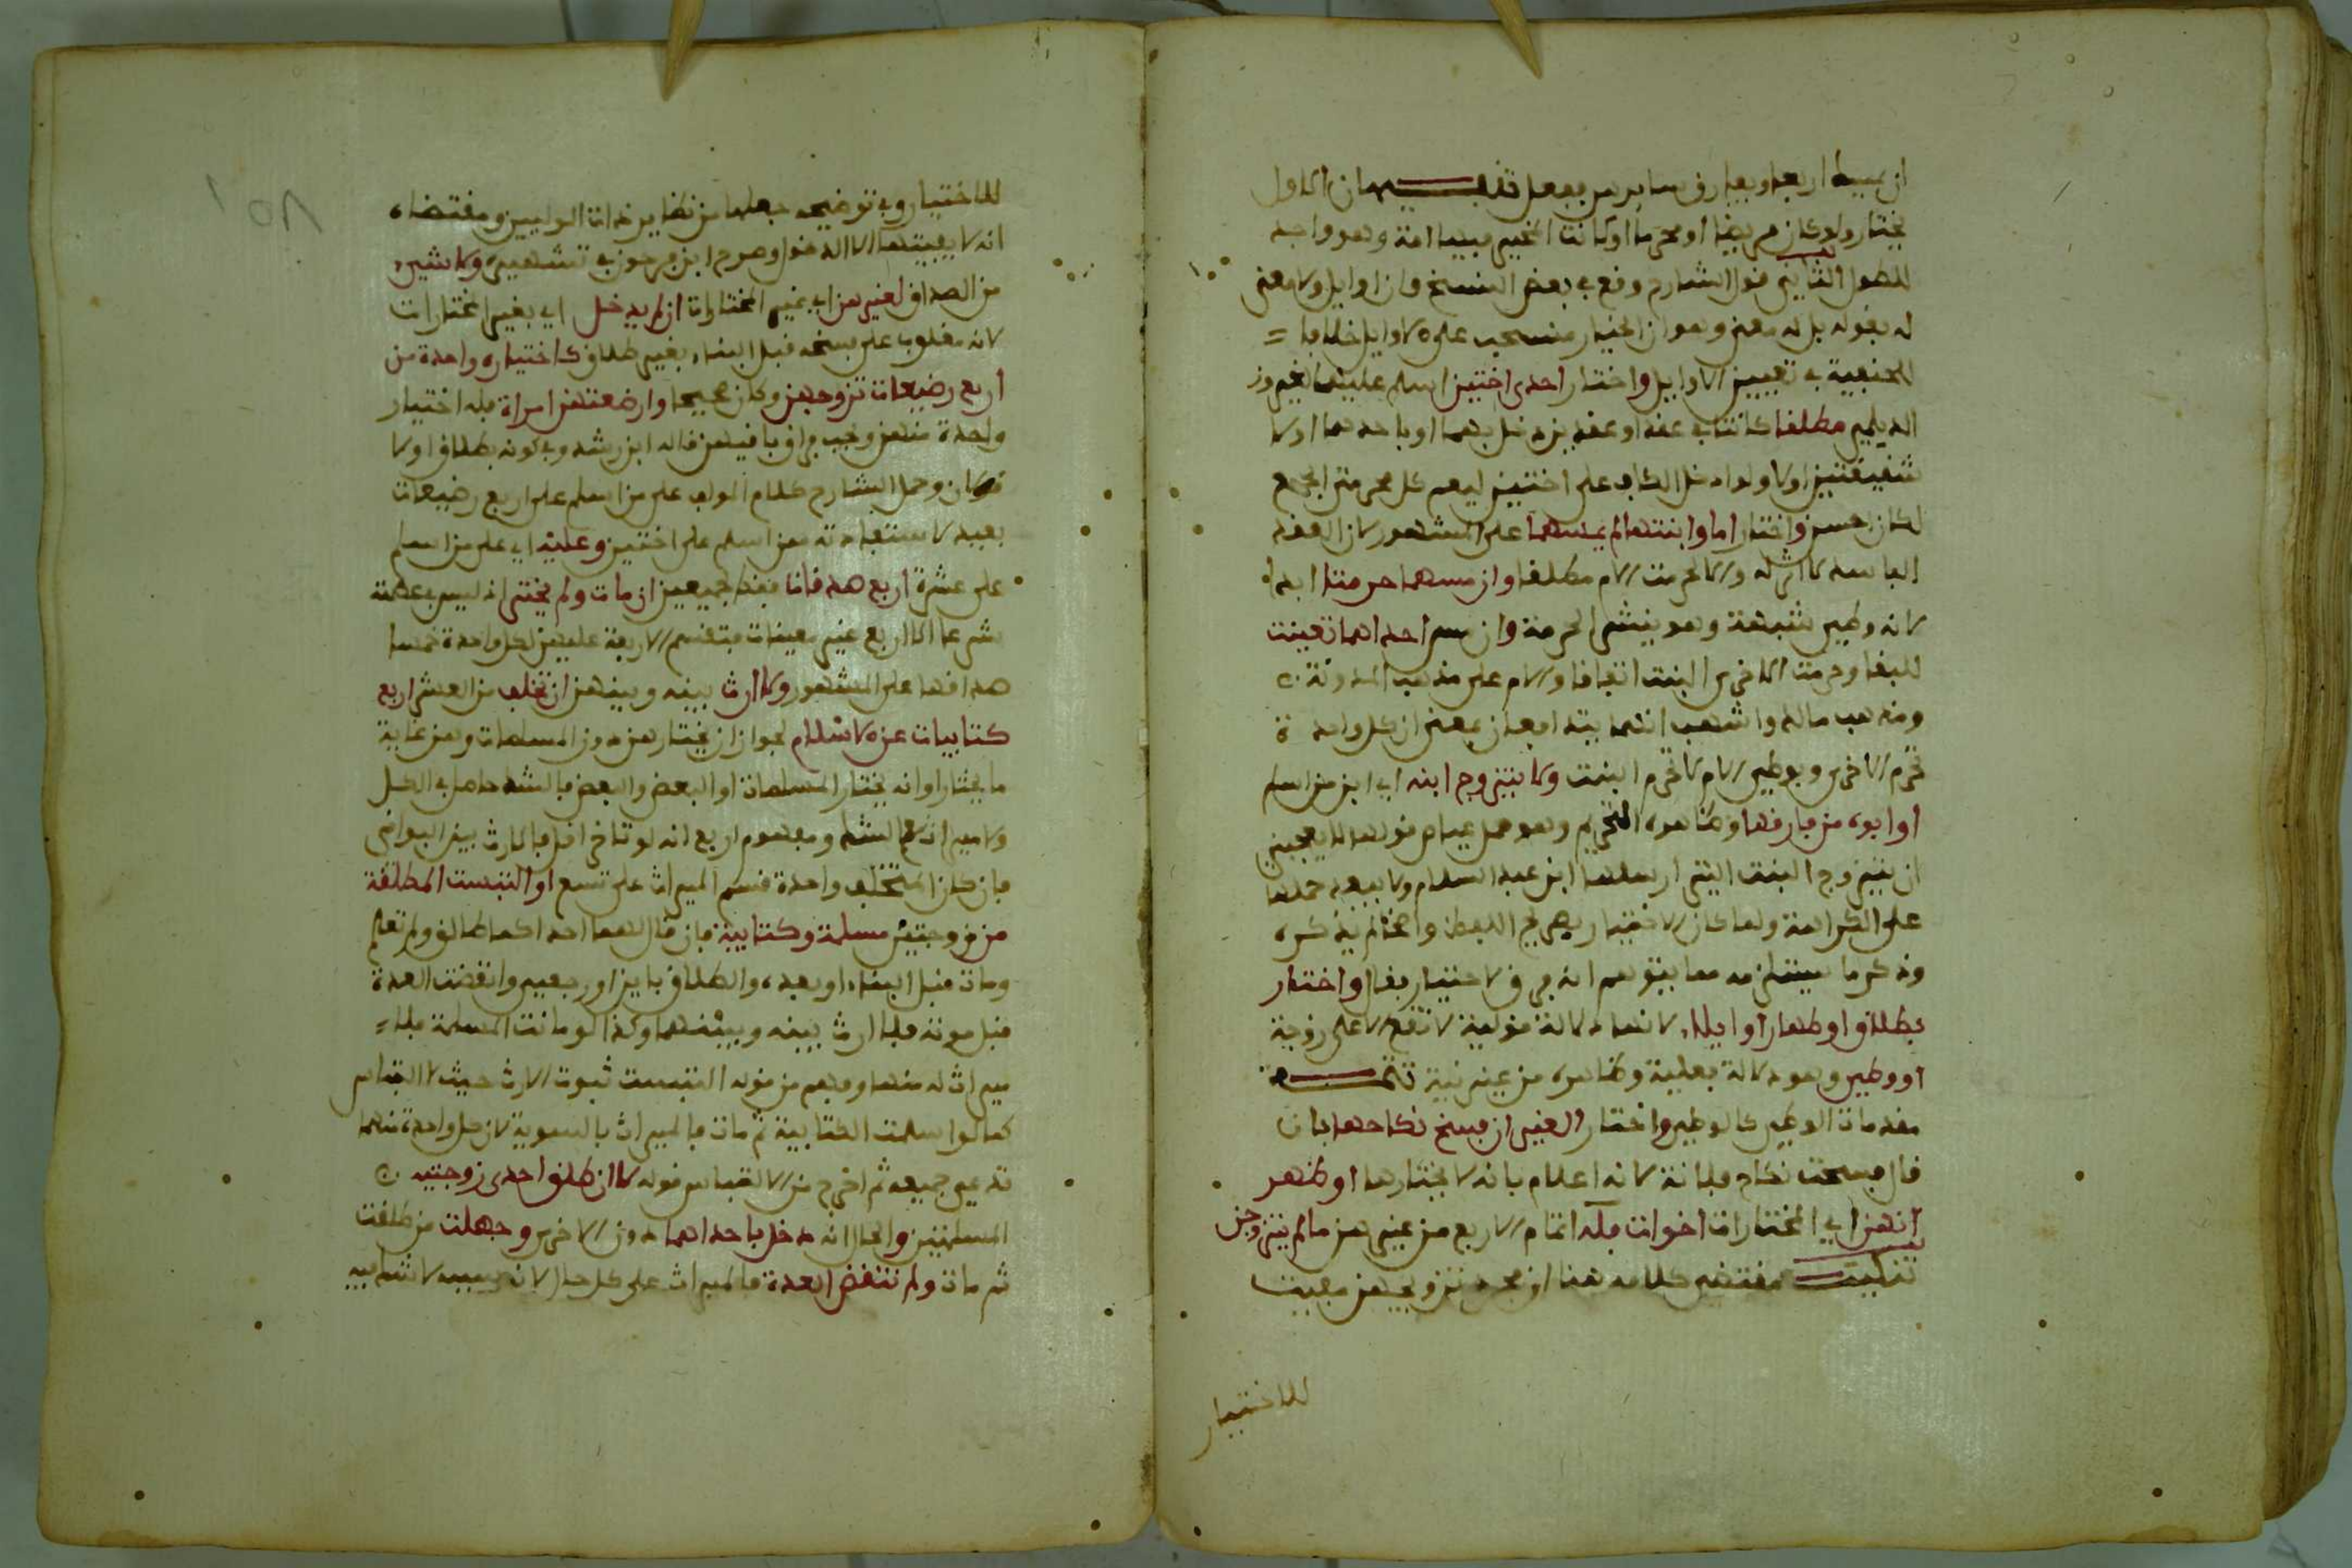 ان يمسك اربعا ويفارق سايرهن ففعل تنبيهان الاول
يختار ولو كان مريضا او محرما او كانت المخير فيها امة وهو واجد
للطول الثاني قول الشارح وقع في بعض النسخ وان اوايل ولا معنى
له بقوله بل له معنى وهو ان الخيار منسحب على الاوايل خلافا
للحنفية في تعيين الاوايل واختار احدى اختين اسلم عليهما
الديلمي مطلقا كانتا في عقد او عقدين دخل بهما او باحدهما اولا
شقيقتين اولا ولو ادخل الكاف على اختين ليعم كل محرمتي الجمع
لكان احسن واختار اما وابنتها لم يمسهما على المشهور لان العقد
الفاسد لا اثر له والا لحرمت الام مطلقا وان مسهما حرمتا ابدا
لانه وطئ شبهة وهو ينشر الحرمة وان مس احداهما تعينت
للبقا وحرمت الاخرى البنت اتفاقا والام على مذهب المدونة
ومذهب مالك واشهب انهما يتدافعان بمعنى ان كل واحدة
تحرم الاخرى وبوطئ الام لا تحرم البنت ولا يتزوج ابنه اي ابن من اسلم
او ابوه من فارقها وظاهره التحريم وهو محمل عياض قولها لا يعجبني
ان يتزوج البنت التي ارسلها ابن عبد السلام ولا يبعد حملها
على الكراهة ولما كان الاختيار بصريح اللفظ واضحا لم يذكره
وذكر ما يستلزمه مما يتوهم انه فرق لاختيار فقال واختار
بطلاق او ظهار او ايلا لانها دلالة قولية لا تقع الا على زوجة
او وطئ وهو دلالة فعلية وظاهره من غير نية تتمة
مقدمات الوطئ كالوطئ واختار الغير ان فسخ نكاحها بان
قال فسخت نكاح فلانة لانه اعلام بانه لا يختارها او ظهر
انهن اي المختارات اخوات فله اتمام الاربع من غيرهن ما لم يتزوجن
تنكيت مقتضى كلامه هنا ان مجرد تزويجهن مفيت
للاختيار
للاختيار وفي توضيحه جعلها من نظاير ذات الوليين ومقتضاه
انه لا يفيتها الا الدخول وصرح ابن فرحون في تشهيره ولا شيء
من الصداق لغيرهن اي غير المختارات ان لم يدخل اي بغير المختارات
لانه مغلوب على فسخه قبل البناء بغير طلاق كاختياره واحدة من
اربع رضيعات تزوجهن وكان صحيحا وارضعتهن امراة فله اختيار
واحدة منهن وتجب فراق باقيهن قاله ابن رشد وفي كونه بطلاق اولا
قولان وحمل الشارح كلام المولف على من اسلم على اربع رضيعات
بعيد لاستفادته من اسلم على اختين وعليه اي على من اسلم
على عشرة اربع صدقات فقط لجميعهن ان مات ولم يختر اذ ليس في عصمته
شرعا الا اربع غير معينات فتقسم الاربعة عليهن لكل واحدة خمسا
صداقها على المشهور ولا ارث بينه وبينهن ان تخلف من العشر اربع
كتابيات عن الاسلام لجواز ان يختارهن دون المسلمات وهن غاية
ما يختار او انه يختار المسلمات او البعض والبعض فالشك حاصل في الكل
ولا ميراث مع الشك ومفهوم اربع انه لو تاخر اقل فالارث بين البواقي
فان كان المتخلف واحدة قسم الميراث على تسع او التبست المطلقة
من زوجتين مسلمة وكتابية فان قال لهما احداكما طالق ولم تعلم
ومات قبل البناء او بعده والطلاق باين او رجعي وانقضت العدة
قبل موته فلا ارث بينه وبينهما وكذا لو ماتت المسلمة فلا
ميراث له منها وفهم من قوله التبست ثبوت الارث حيث لا التباس
كما لو اسلمت الكتابية ثم مات فالميراث بالسوية لان كل واحدة منهما
تدعي جميعه ثم اخرج من الالتباس قوله لا ان طلق احدى زوجتيه
المسلمتين والحال انه دخل باحداهما دون الاخرى وجهلت من طلقت
ثم مات ولم تنقض العدة فالميراث على كل حال لان